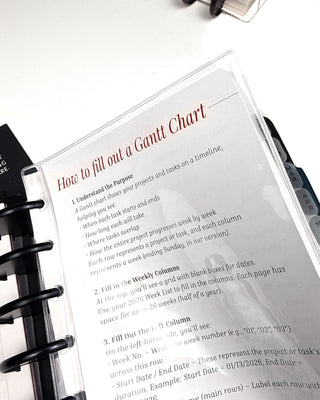 How to fill out a Gantt Chart
1. Understand the Purpose
A Gantt chart shows your projects and tasks on a timeline,
helping you see:
- When each task starts and ends
- How long each will take
- Where tasks overlap
- How the entire project progresses week by week
Each row represents a project or task, and each column
represents a week (ending Sunday, in our version).
2. Fill in the Weekly Columns
At the top, you'll see a grid with blank boxes for dates.
Use your 2026 Week List to fill in the columns. Each page has
space for up to 26 weeks (half of a year).
3. Fill Out the Left Column
On the left-hand side, you'll see:
- Week No. – Write the week number (e.g., "01", "02", "03")
across this row.
- Start Date / End Date – These represent the project or task's
duration. Example: Start Date = 01/13/2026, End Date =
2026
name (main rows) – Label each row with